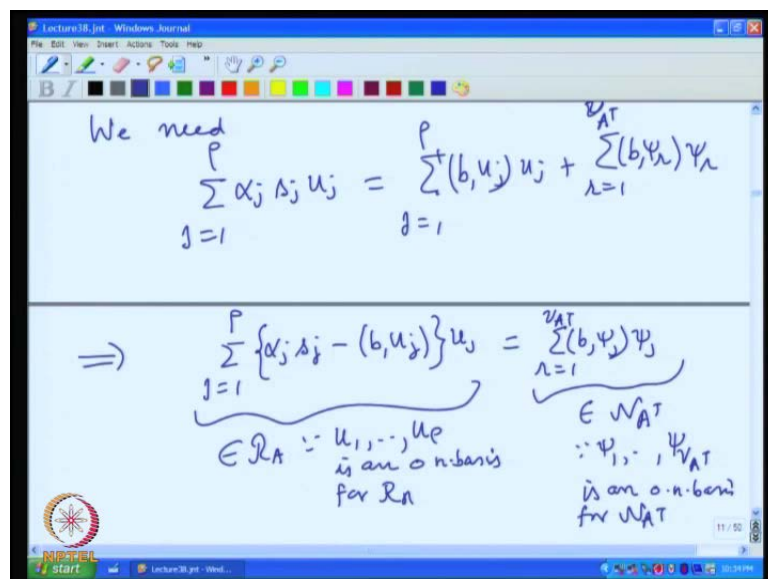 Lecture38.jnt - Windows Journal
File Edit View Insert Actions Tools Help
B I
We need
ρ ρ ν_{A^T}
∑ α_j s_j u_j = ∑ (b, u_j) u_j + ∑ (b, ψ_r) ψ_r
j=1 j=1 r=1
ρ ν_{A^T}
⟹ ∑ {α_j s_j − (b, u_j)} u_j = ∑ (b, ψ_j) ψ_j
j=1 r=1
∈ R_A ∵ u_1, .., u_ρ
is an o n.basis
for R_A
∈ N_{A^T}
∵ ψ_1, .. , ψ_{ν_{A^T}}
is an o.n.basis
for N_{A^T}
11 / 50
NPTEL
start Lecture38.jnt - Wind... 10:34 PM